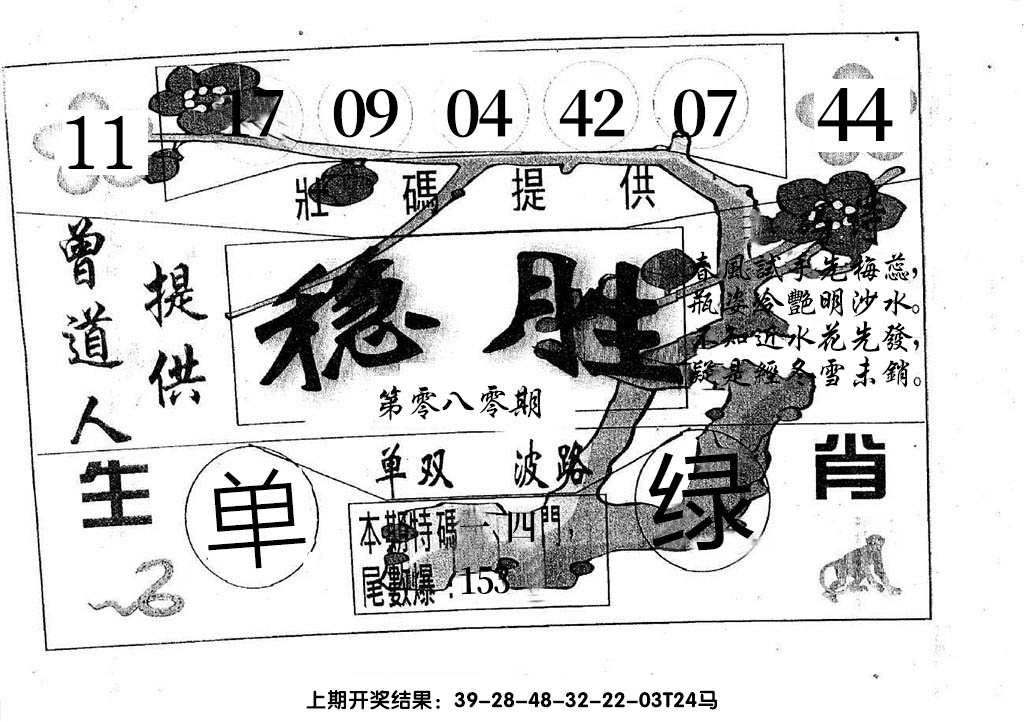 11 17 09 04 42 07 44
壯碼提供
特
曾道人
提供
稳胜
第零八零期
春風試手先梅蕊，
瓶姿冷艷明沙水。
不知近水花先發，
疑是經冬雪未銷。
单双 波路
生
单
绿
肖
本期特碼一、四門，
尾數爆：153
上期开奖结果：39-28-48-32-22-03T24马